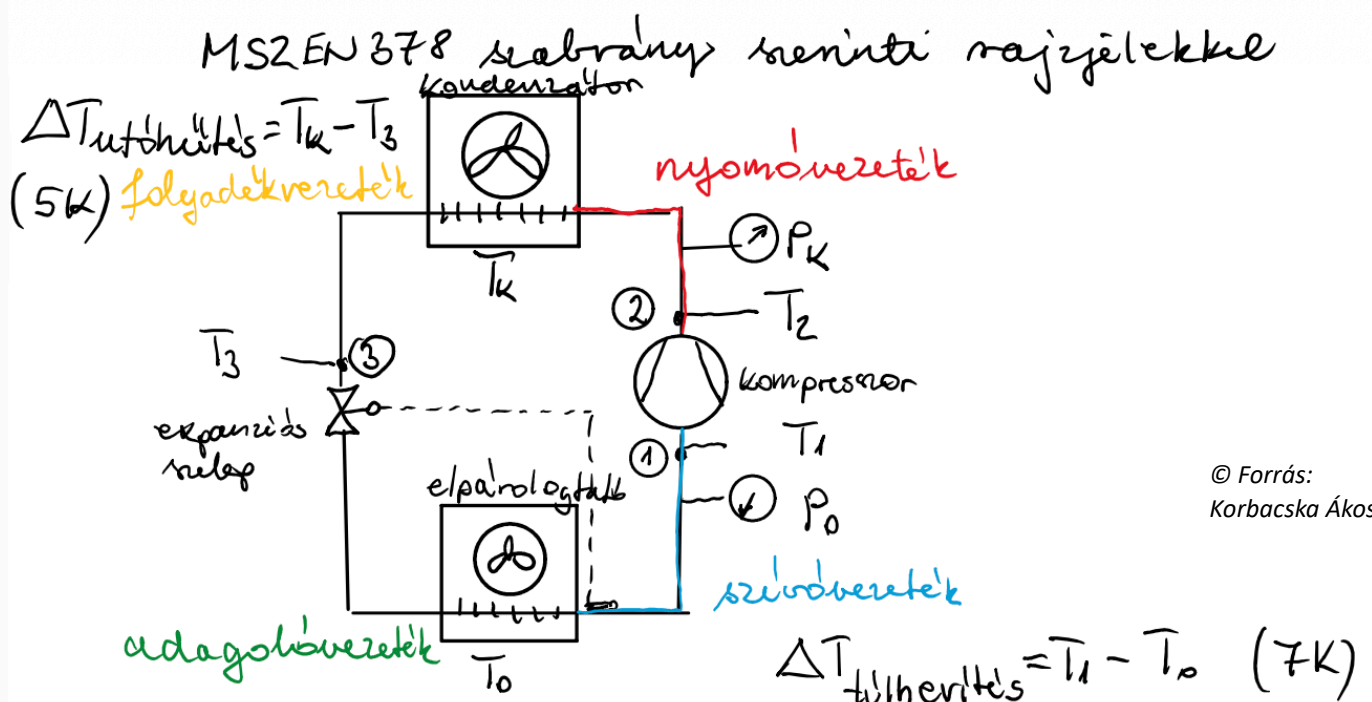 MSZ EN 378 szabvány szerinti rajzjelekkel
kondenzátor
ΔTutóhűtés = Tk - T3
(5K)
folyadékvezeték
nyomóvezeték
Pk
Tk
2
T2
T3
3
kompresszor
expanziós
szelep
1
T1
elpárologtató
P0
© Forrás:
Korbacska Ákos
szívóvezeték
adagolóvezeték
T0
ΔTtúlhevítés = T1 - T0 (7K)